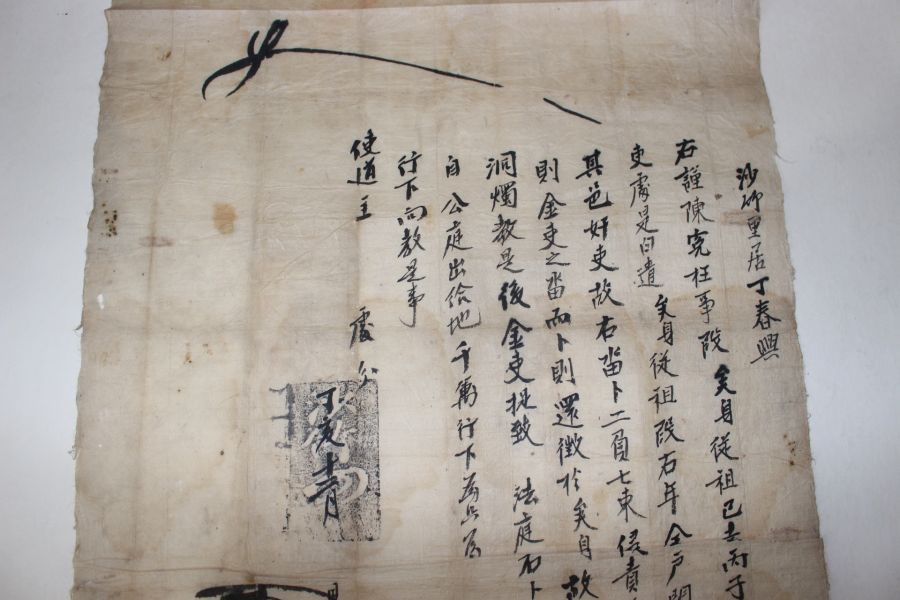 沙峅里居丁春興
右謹陳寃枉事段矣身從祖已去丙子
吏處是白遣矣身從祖段右年全戶閉
其色奸吏故右畓卜二負七束侵責
則金吏之畓而卜則還徵於矣身故
洞燭敎是後金吏捉致 法庭右卜
自 公庭出給地千萬行下爲只爲
行下向敎是事
使道主 處分
丁亥 月